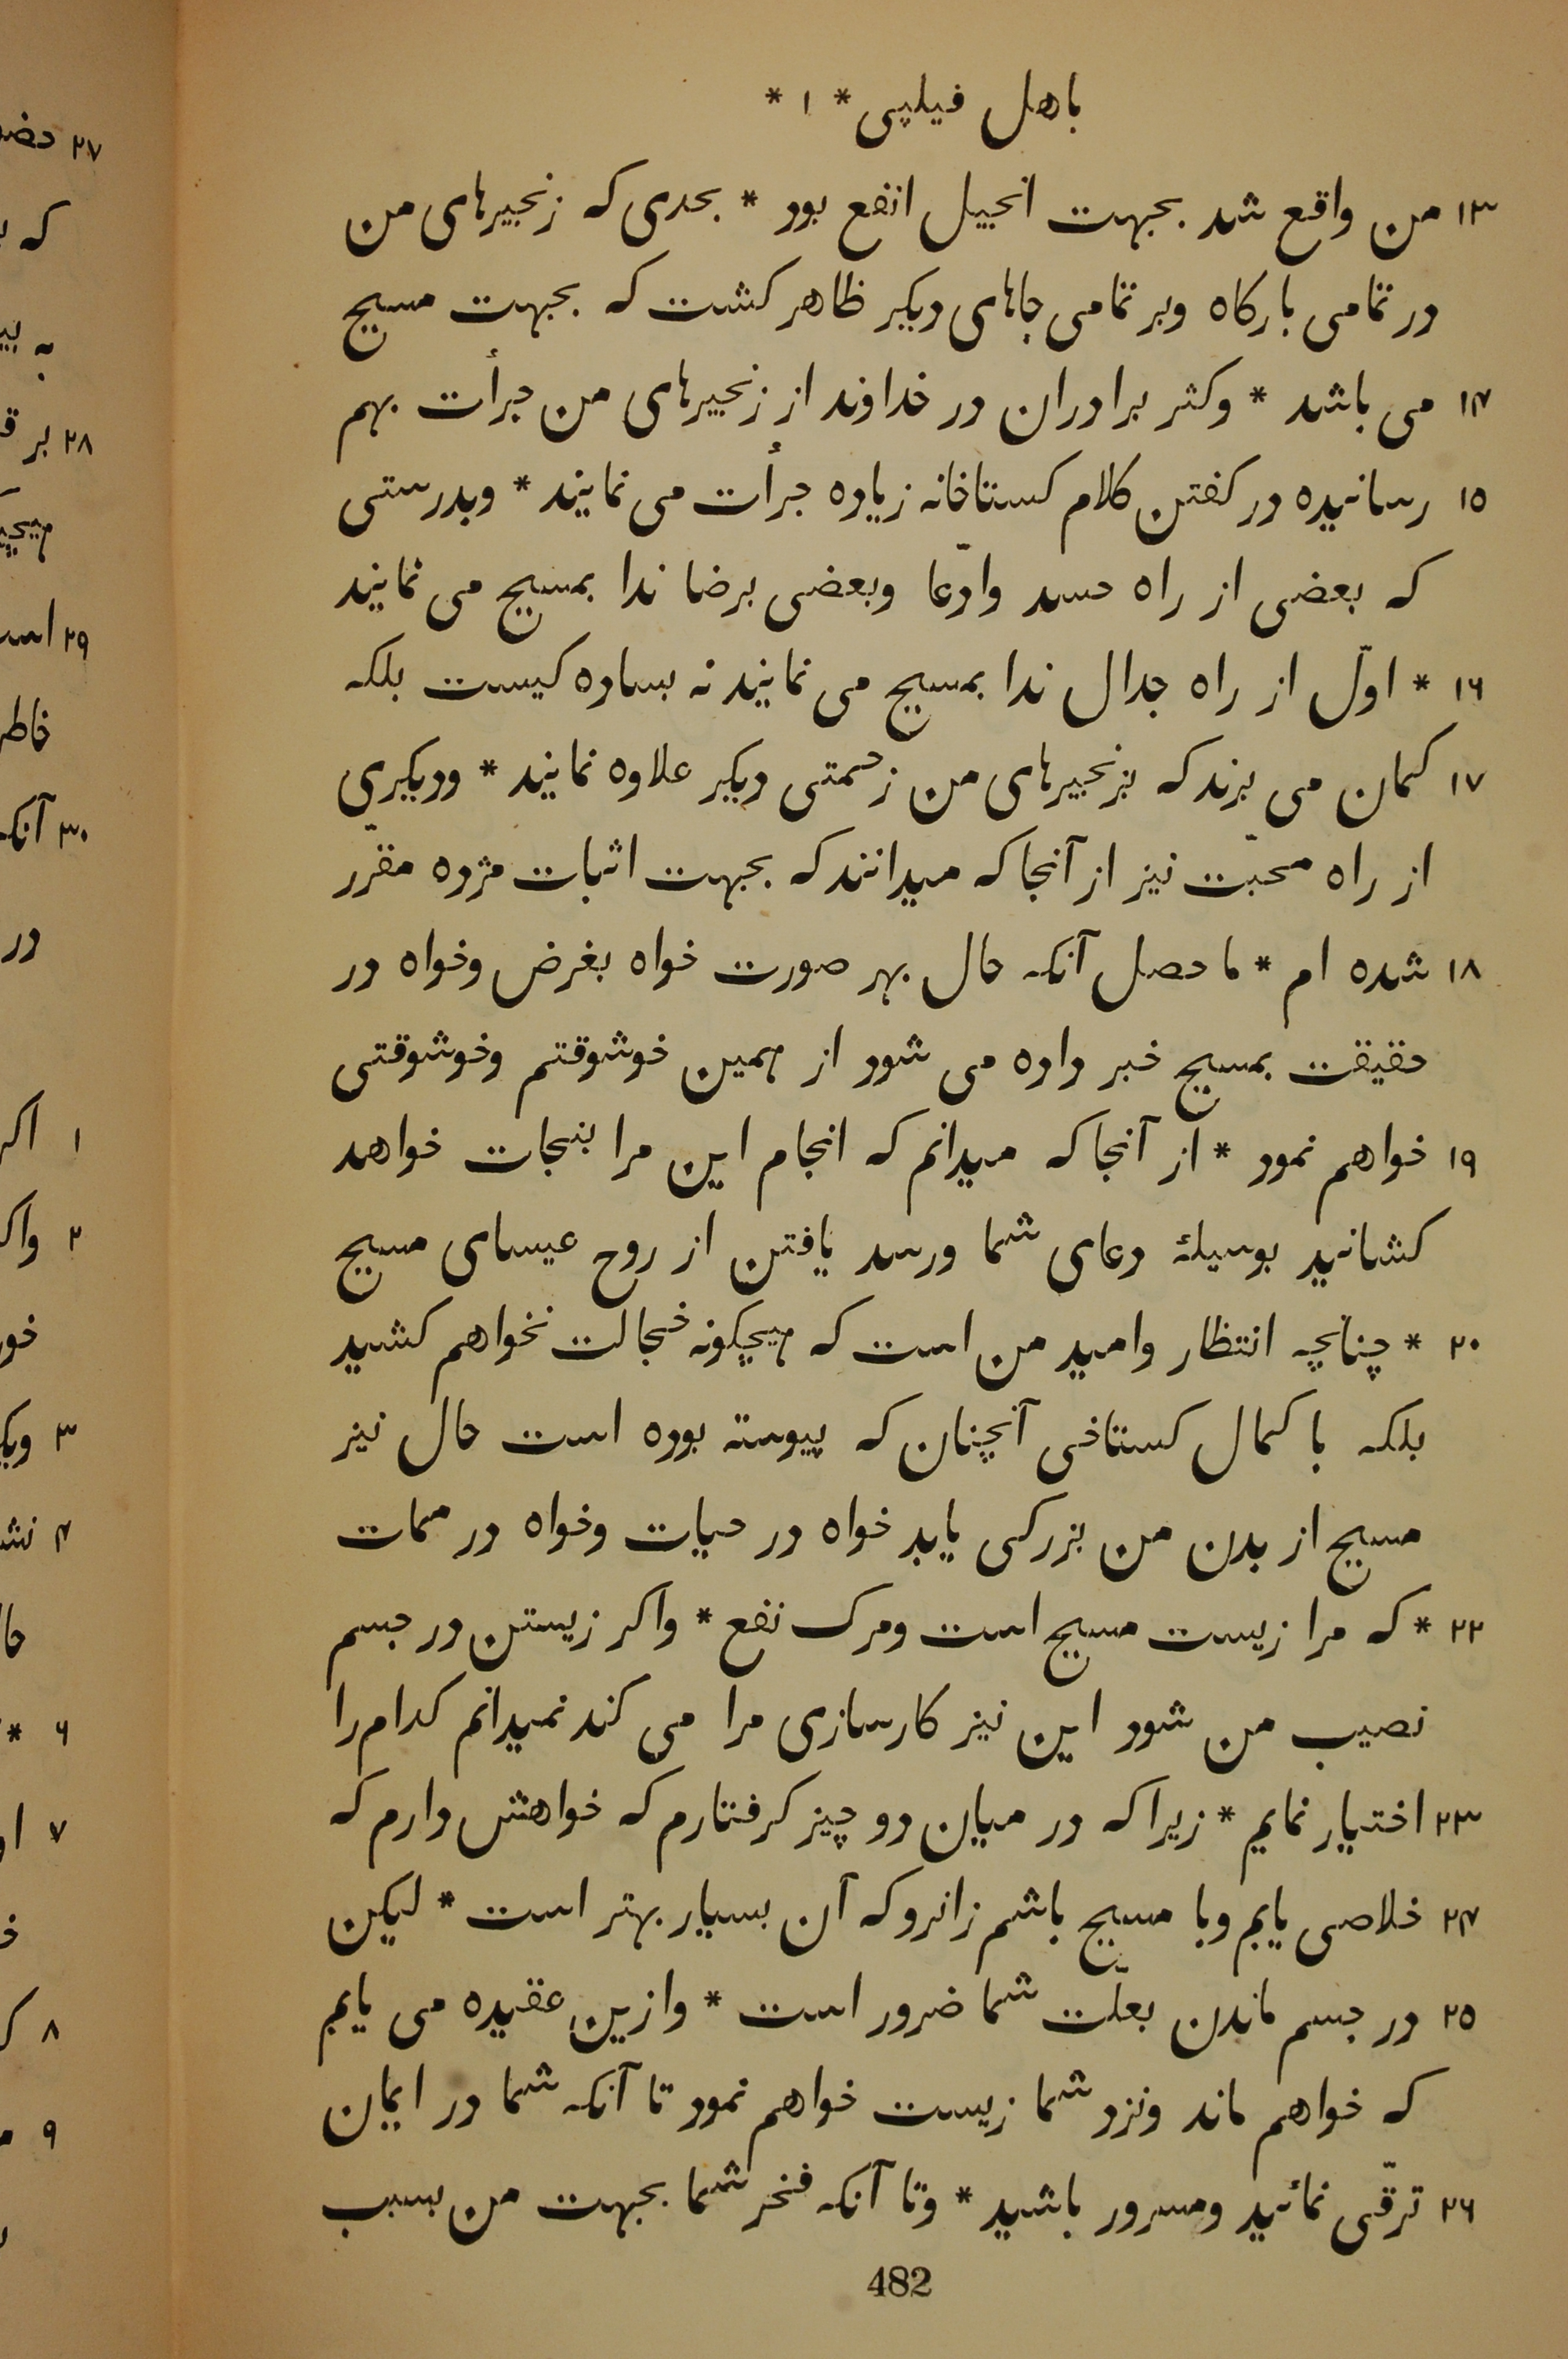 باهل فیلپی * ۱ *
۱۳ من واقع شد بجهت انجیل انفع بود * بحدی که زنجیرهای من
در تمامی بارکاه وبر تمامی جاهای دیکر ظاهر کشت که بجهت مسیح
۱۴ می باشد * وکثر برادران در خداوند از زنجیرهای من جرأت بهم
۱۵ رسانیده در کفتن کلام کستاخانه زیاده جرأت می نمایند * وبدرستی
که بعضی از راه حسد وادّعا وبعضی برضا ندا بمسیح می نمایند
۱۶ * اوّل از راه جدال ندا بمسیح می نمایند نه بساده کیست بلکه
۱۷ کمان می برند که بزنجیرهای من زحمتی دیکر علاوه نمایند * ودیکری
از راه محبّت نیز از آنجا که میدانند که بجهت اثبات مژده مقرّر
۱۸ شده ام * ما حصل آنکه حال بهر صورت خواه بغرض وخواه در
حقیقت بمسیح خبر داده می شود از همین خوشوقتم وخوشوقتی
۱۹ خواهم نمود * از آنجا که میدانم که انجام این مرا بنجات خواهد
کشانید بوسیلهٔ دعای شما ورسد یافتن از روح عیسای مسیح
۲۰ * چنانچه انتظار وامید من است که هیچکونه خجالت نخواهم کشید
بلکه با کمال کستاخی آنچنان که پیوسته بوده است حال نیز
مسیح از بدن من بزرکی یابد خواه در حیات وخواه در ممات
۲۲ * که مرا زیست مسیح است ومرک نفع * واکر زیستن در جسم
نصیب من شود این نیز کارسازی مرا می کند نمیدانم کدام را
۲۳ اختیار نمایم * زیرا که در میان دو چیز کرفتارم که خواهش دارم که
۲۴ خلاصی یابم وبا مسیح باشم زانرو که آن بسیار بهتر است * لیکن
۲۵ در جسم ماندن بعلّت شما ضرور است * وازین عقیده می یابم
که خواهم ماند ونزد شما زیست خواهم نمود تا آنکه شما در ایمان
۲۶ ترقّی نمائید ومسرور باشید * وتا آنکه فخر شما بجهت من بسبب
482
۲۷
که
۲۸ بر
۲۹
خاطر
۳۰ آنکه
در
۱ اکر
۲ واکر
۳
۴
۶ *
۷
۸
۹